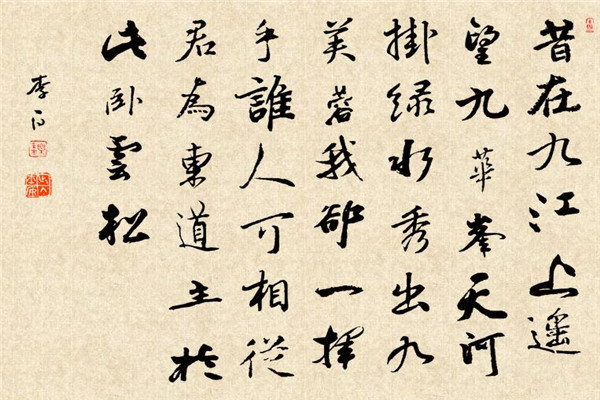 昔在九江上遙
望九華峯天河
掛绿水秀出九
芙蓉我欲一揮
手誰人可相從
君為東道主於
此卧雲松
李白